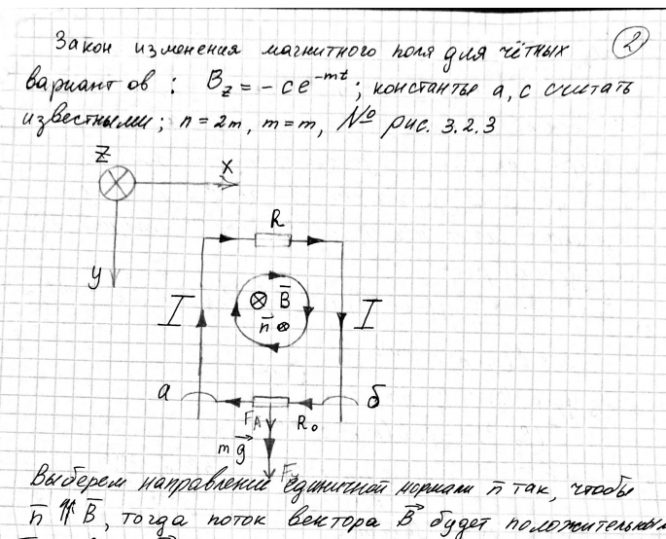 2
Закон изменения магнитного поля для чётных
вариантов : B_z = -ce^{-mt}; константы a, c считать
известными; n = 2m, m = m, № рис. 3.2.3
Z
X
y
R
I
B
n
I
а
б
F_A
R_0
mg
F
Выберем направление единичной нормали n̄ так, чтобы
n̄ ⇈ B̄, тогда поток вектора B⃗ будет положительным